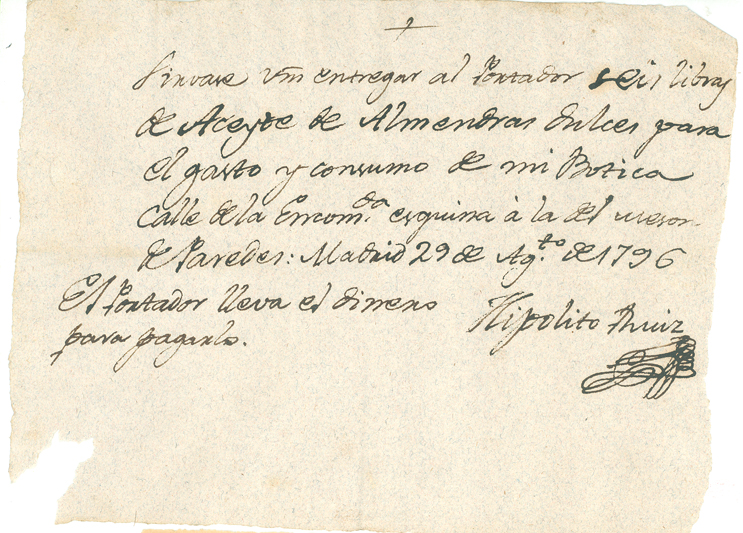 Sirvase Vm entregar al Portador seis libras
de Aceyte de Almendras dulces para
el gasto y consumo de mi Botica
Calle de la Encom.da esquina à la del Meson
de Paredes: Madrid 29 de Ag.to de 1796
El Portador lleva el dinnero
para pagarlo.
Hipolito Ruiz